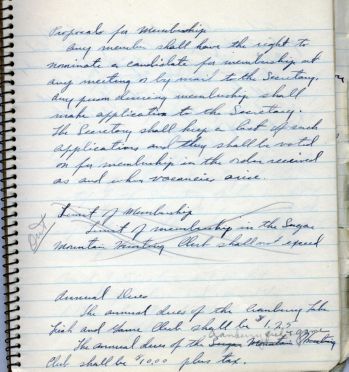 Proposals for Membership
Any member shall have the right to
nominate a candidate for membership at
any meeting or by mail to the Secretary.
Any person desiring membership shall
make application to the Secretary.
The Secretary shall keep a list of such
applications and they shall be voted
on for membership in the order received
as and when vacancies arise.
Out
Limit of Membership
Limit of membership in the Sugar
Mountain Hunting Club shall not exceed
Annual Dues
The annual dues of the Cranberry Lake
Fish and Game Club shall be 1.25
The annual dues of the Sugar Mountain Hunting
Club shall be $10.00 plus tax.